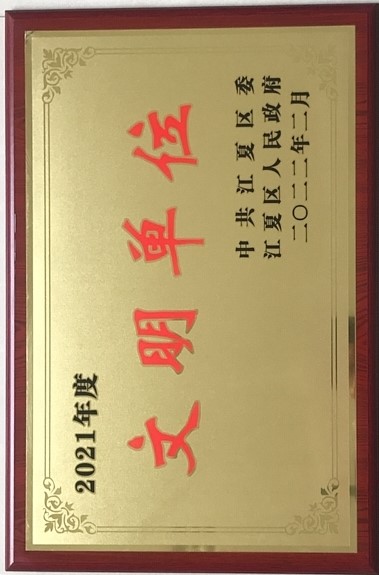 2021年度
文明单位
中共江夏区委
江夏区人民政府
二〇二二年二月